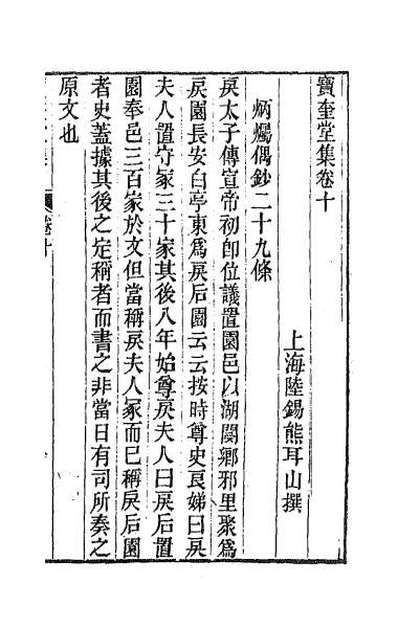 寶奎堂集卷十
上海陸錫熊耳山撰
炳燭偶鈔二十九條
戾太子傳宣帝初卽位議置園邑以湖閿鄉邪里聚爲
戾園長安白亭東爲戾后園云云按時尊史良娣曰戾
夫人置守冢三十家其後八年始尊戾夫人曰戾后置
園奉邑三百家於文但當稱戾夫人冢而已稱戾后園
者史蓋據其後之定稱者而書之非當日有司所奏之
原文也
卷十